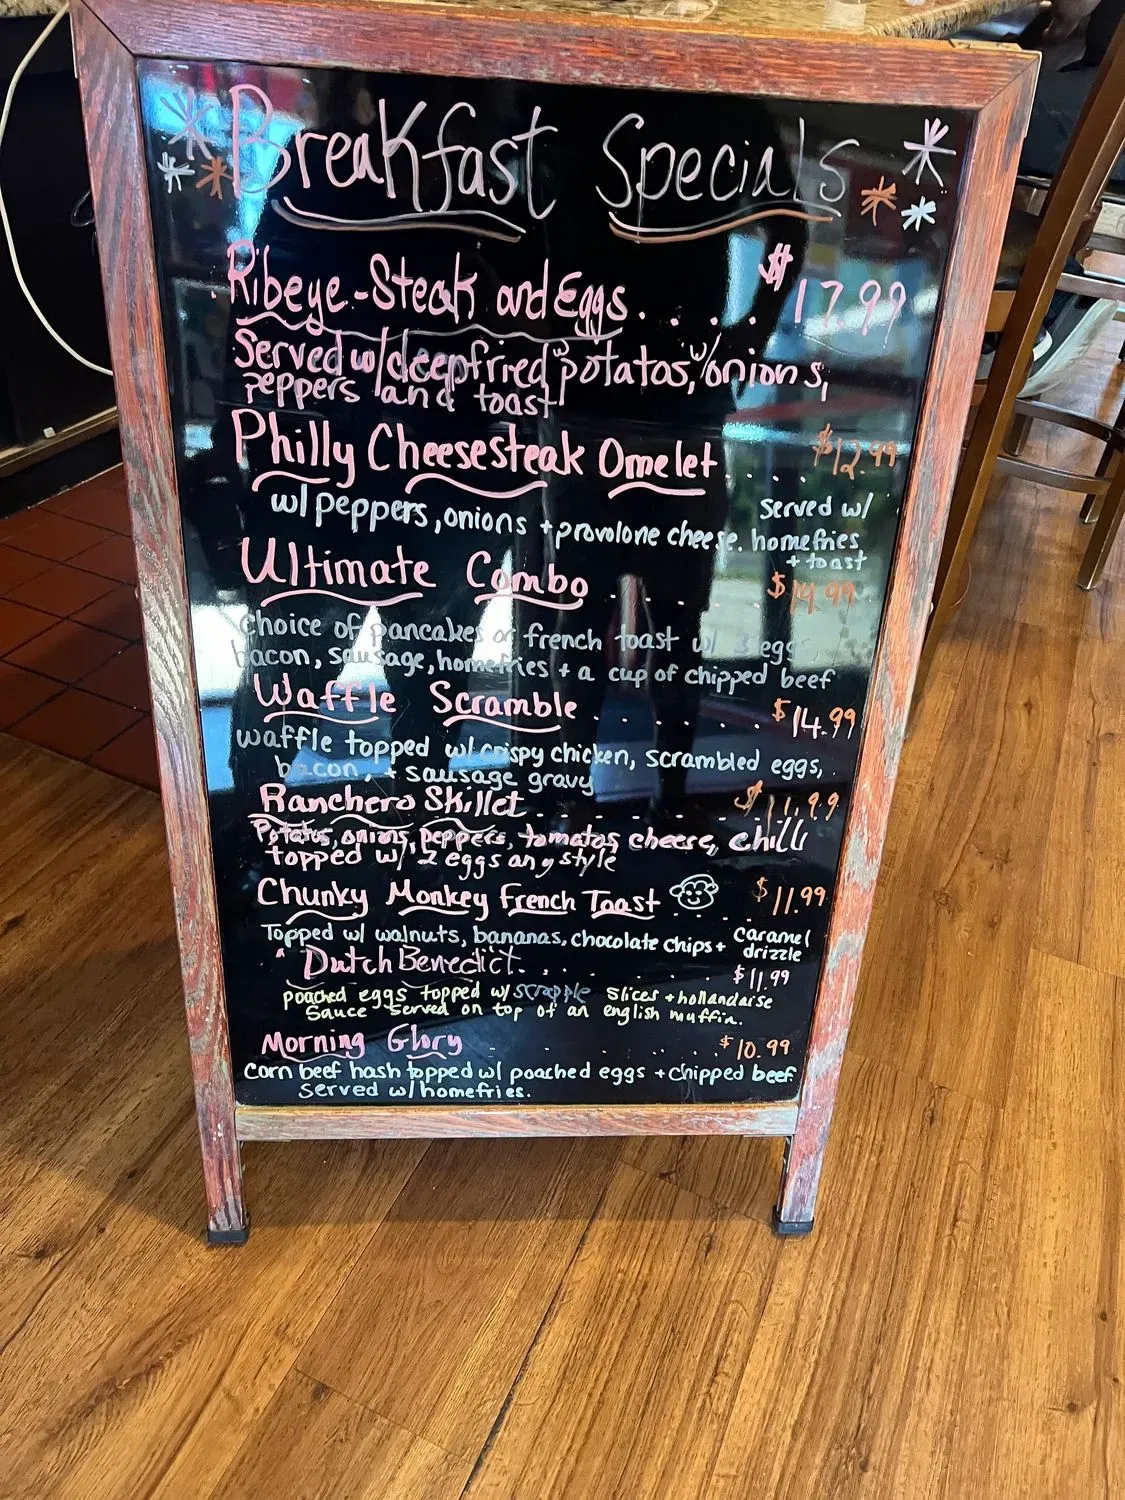 Breakfast Specials
Ribeye-Steak and Eggs. . . . $17.99
Served w/deepfried potatos, w/onions,
peppers and toast
Philly Cheesesteak Omelet . . . $12.99
w/peppers, onions + provolone cheese. Served w/
homefries
+ toast
Ultimate Combo . . . . $14.99
choice of pancakes or french toast w/ 3 eggs,
bacon, sausage, homefries + a cup of chipped beef
Waffle Scramble . . . . . . $14.99
waffle topped w/crispy chicken, scrambled eggs,
bacon, + sausage gravy
Ranchero Skillet . . . . . . . $11.99
Potatos, onions, peppers, tomatos cheese, chilli
topped w/ 2 eggs any style
Chunky Monkey French Toast . . . . $11.99
Topped w/ walnuts, bananas, chocolate chips + caramel
drizzle
Dutch Benedict. . . . . . . . $11.99
poached eggs topped w/ scrapple slices + hollandaise
Sauce served on top of an english muffin.
Morning Glory . . . . . . $10.99
Corn beef hash topped w/ poached eggs + chipped beef.
Served w/homefries.